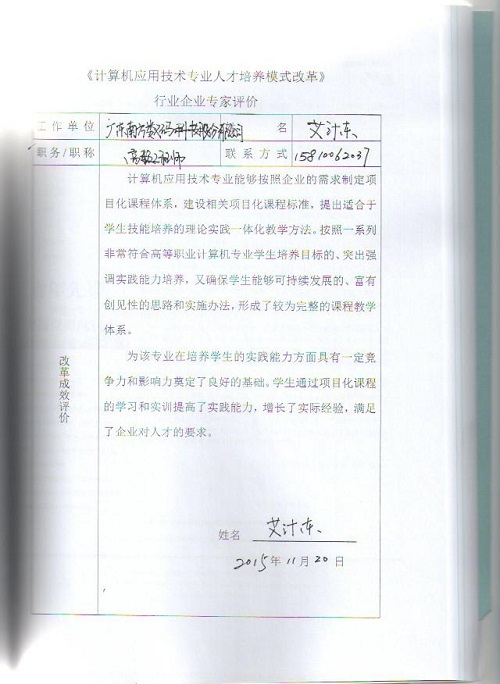 《计算机应用技术专业人才培养模式改革》
行业企业专家评价
工作单位 广东南方数码科技股份有限公司 名 艾计东
职务/职称 高级工程师 联系方式 15810062037
计算机应用技术专业能够按照企业的需求制定项
目化课程体系，建设相关项目化课程标准，提出适合于
学生技能培养的理论实践一体化教学方法。按照一系列
非常符合高等职业计算机专业学生培养目标的、突出强
调实践能力培养，又确保学生能够可持续发展的、富有
创见性的思路和实施办法，形成了较为完整的课程教学
体系。
改革成效评价
为该专业在培养学生的实践能力方面具有一定竞
争力和影响力奠定了良好的基础。学生通过项目化课程
的学习和实训提高了实践能力，增长了实际经验，满足
了企业对人才的要求。
姓名 艾计东
2015年11月20日